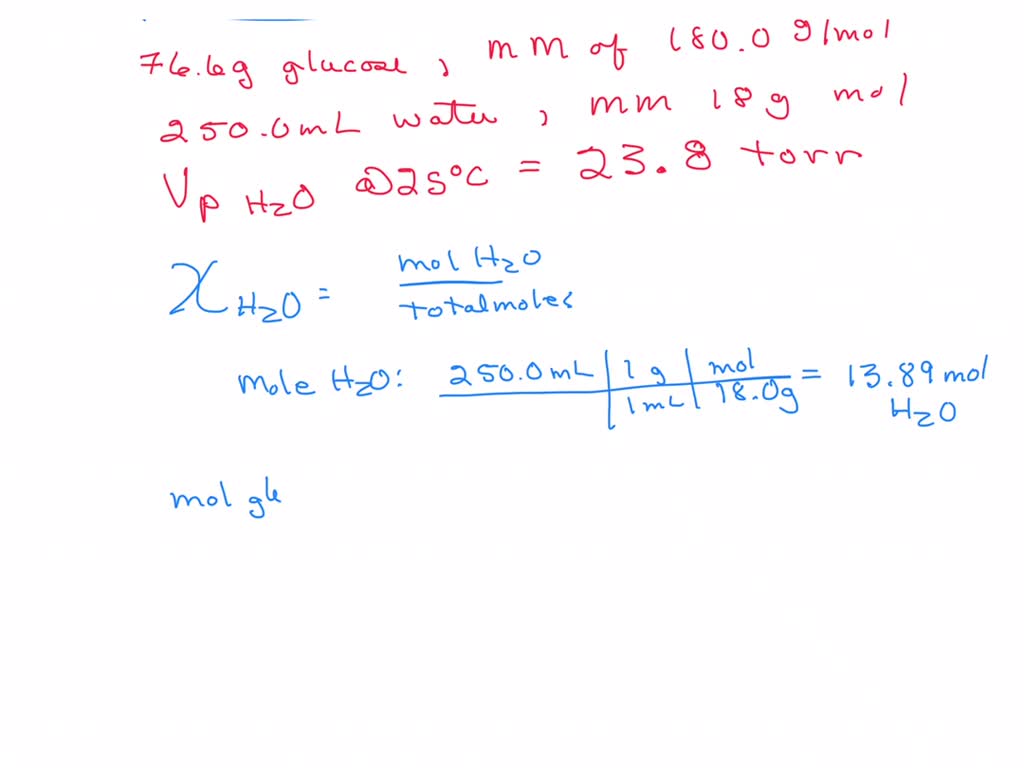 76.6g glucose, mm of 180.0 g/mol
250.0mL water, mm 18g mol
Vp H2O @25°C = 23.8 torr
XH2O = mol H2O
total moles
mole H2O: 250.0mL | 1 g | mol = 13.89 mol
| 1 mL | 18.0g H2O
mol gl